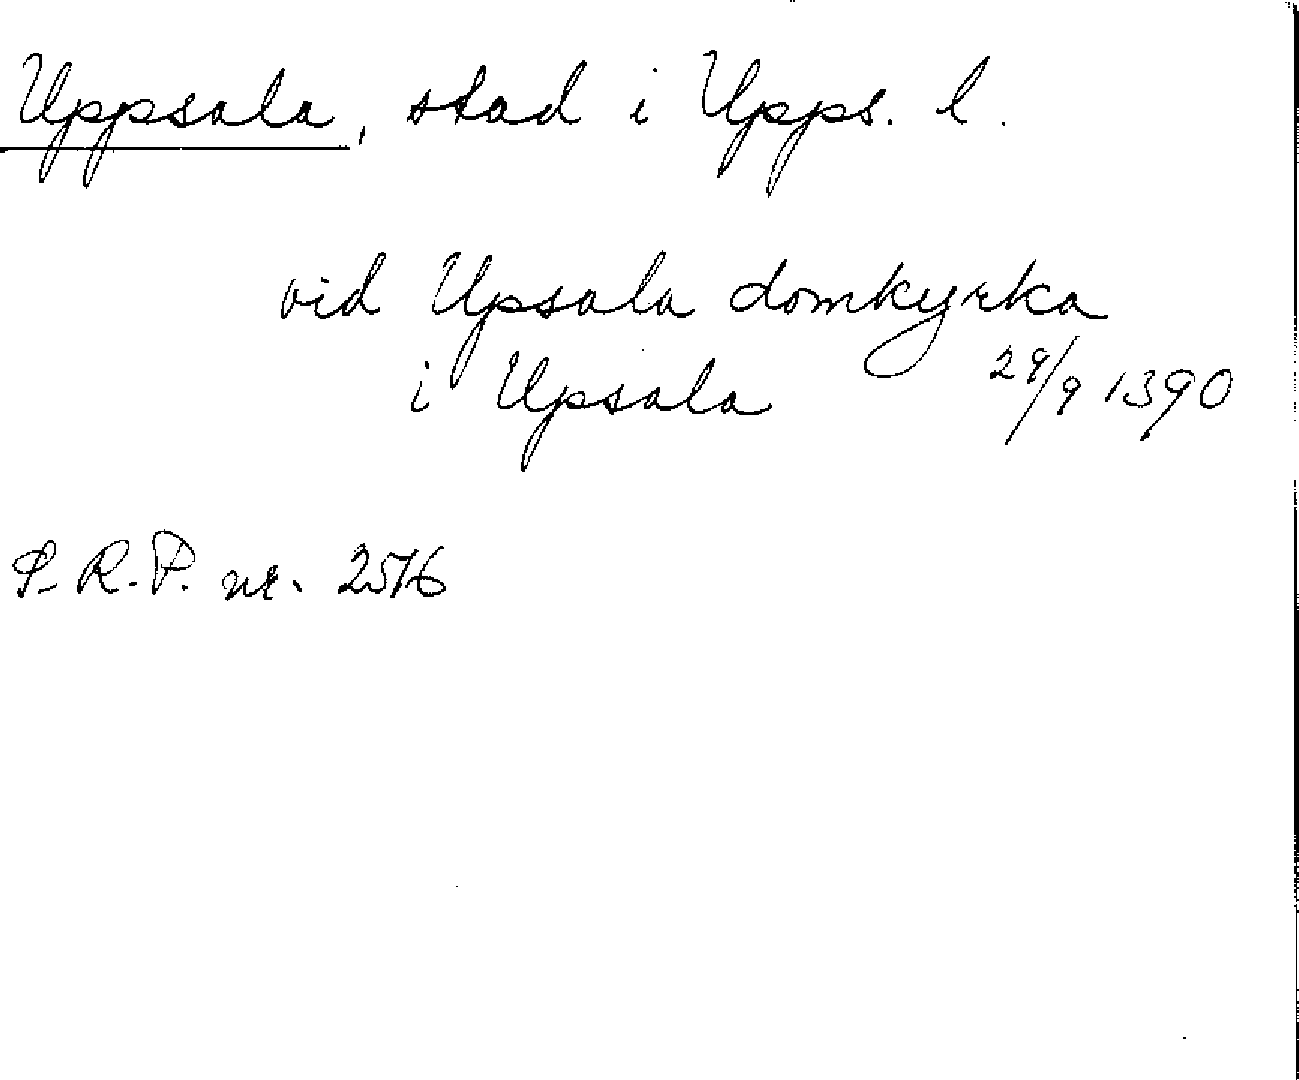 Uppsala, stad i Upps. l.
vid Upsala domkyrka
i Upsala 29/9 1390
S. R. P. nr. 2576